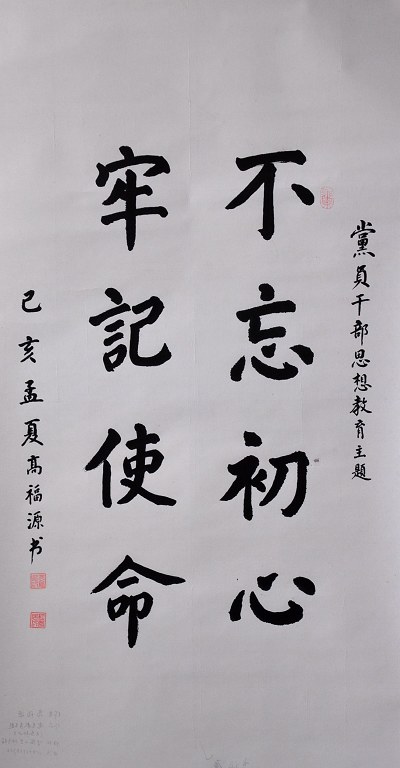 黨員干部思想教育主題
不忘初心
牢記使命
己亥孟夏高福源书